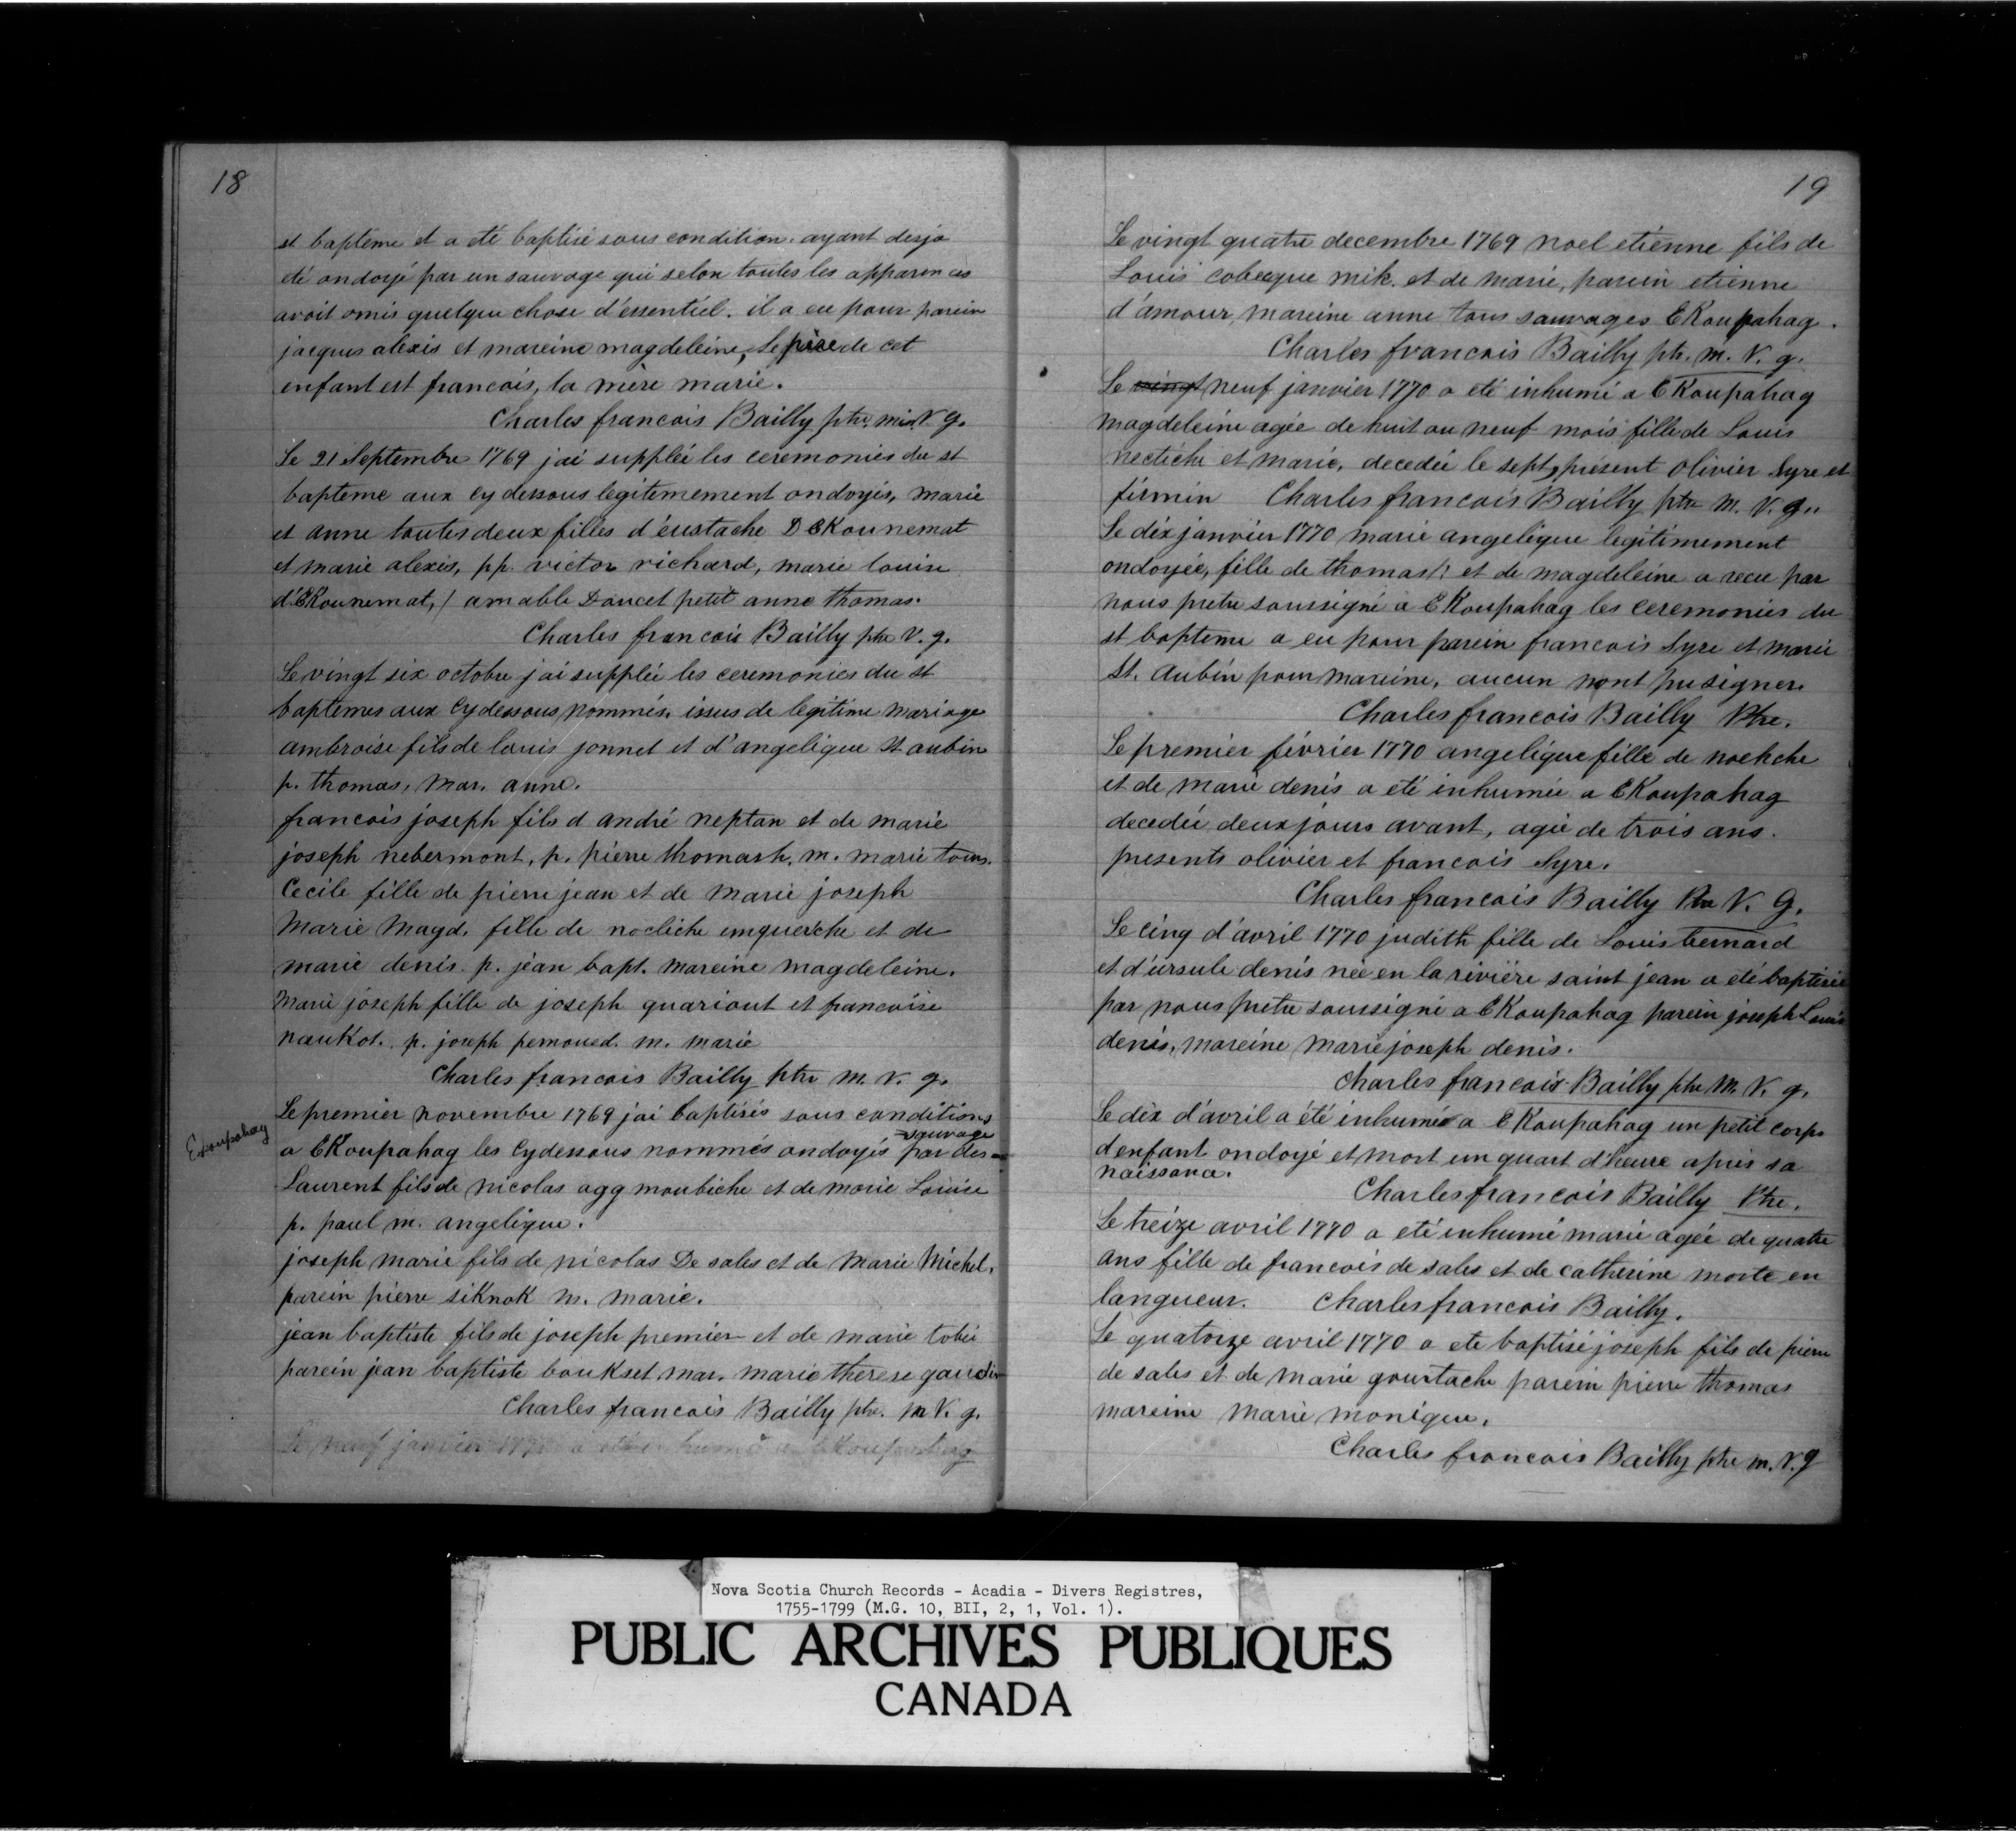 18
st bapteme et a eté baptisé sous condition. ayant desja
eté ondoyé par un sauvage qui selon toutes les apparences
avoit omis quelque chose d'essentiel. il a eu pour parein
jacques alexis et mareine magdeleine, le père de cet
enfant est francois, la mère marie.
Charles francois Bailly ptre. mis. V g.
Le 21 Septembre 1769 j'ai suppléé les ceremonies du st
bapteme aux cy dessous legitimement ondoyés, marie
et anne toutes deux filles d'eustache D EKounemat
et marie alexis, pp. victor richard, marie louise
d'EKounemat, / amable Doucet petit anne thomas.
Charles francois Bailly ptre V. g.
Le vingt six octobre j'ai suppléé les ceremonies du st
baptemes aux Cydessous nommés. issus de legitime mariage
ambroise fils de louis jonnet et d'angelique St aubin
p. thomas, mar. anne.
francois joseph fils d andré neptan et de marie
joseph nebermont, p. pierre thomash. m. marie tous.
Cecile fille de pierre jean et de marie joseph
Marie Magd. fille de nocliche emquerche et de
marie denis. p. jean bapt. mareine magdeleine.
Marie joseph fille de joseph quariout et francoise
naukot. p. joseph pemoued. m. marie
Charles francois Bailly ptre m. v. g.
Le premier novembre 1769 j'ai baptisés sous conditions
Ekoupahag
sauvage
a EKoupahag les Cydessous nommés ondoyés par des
Laurent fils de nicolas agg moubiche et de marie Louise
p. paul m. angelique.
joseph marie fils de nicolas De sales et de Marie Michel.
parein pierre siknok m. marie.
jean baptiste fils de joseph premier et de marie tobie
parein jean baptiste boukset mar. marie therese gaudin
Charles francois Bailly ptr. m V. g.
Le neuf janvier 1770 a eté inhumé a EKoupahag
19
Le vingt quatre decembre 1769 noel etienne fils de
Louis cobecque mik. et de marie, parein etienne
d'amour, mareine anne tous sauvages EKoupahag.
Charles francois Bailly ptr. m. V. g.
Le vingt neuf janvier 1770 a eté inhumé a EKoupahag
magdeleine agée de huit ou neuf mois fille de Louis
nectiche et marie, decedée le sept, présent olivier Syre et
firmin Charles francois Bailly ptre M. V. g.
Le dix janvier 1770 marie angelique legitimement
ondoyée, fille de thomas /: et de magdeleine a recu par
nous pretre soussigné à EKoupahag les ceremonies du
st bapteme a eu pour parein francois Syre et marie
St. Aubin pour mareine, aucun n'ont pu signer.
Charles francois Bailly Ptre.
Le premier février 1770 angelique fille de noehche
et de marie denis a eté inhumée a EKoupahag
decedée deux jours avant, agée de trois ans.
presents olivier et francois Syre.
Charles francois Bailly Ptre V. G.
Le cinq d'avril 1770 judith fille de Louis bernard
et d'ursule denis née en la rivière saint jean a eté baptisée
par nous pretre soussigné a EKoupahag parein joseph Louis
denis, mareine marie joseph denis.
Charles francois Bailly ptre M. V. g.
Le dix d'avril a été inhumé a EKoupahag un petit corps
d'enfant ondoyé et mort un quart d'heure après sa
naissance.
Charles francois Bailly Ptre.
Le treize avril 1770 a eté inhumé marie agée de quatre
ans fille de francois de sales et de catherine morte en
langueur. Charles francois Bailly.
Le quatorze avril 1770 a ete baptisé joseph fils de pierre
de sales et de marie goustache parein pierre thomas
mareine marie monique.
Charles francois Bailly ptre m. V. g
Nova Scotia Church Records - Acadia - Divers Registres,
1755-1799 (M.G. 10, BII, 2, 1, Vol. 1).
PUBLIC ARCHIVES PUBLIQUES
CANADA